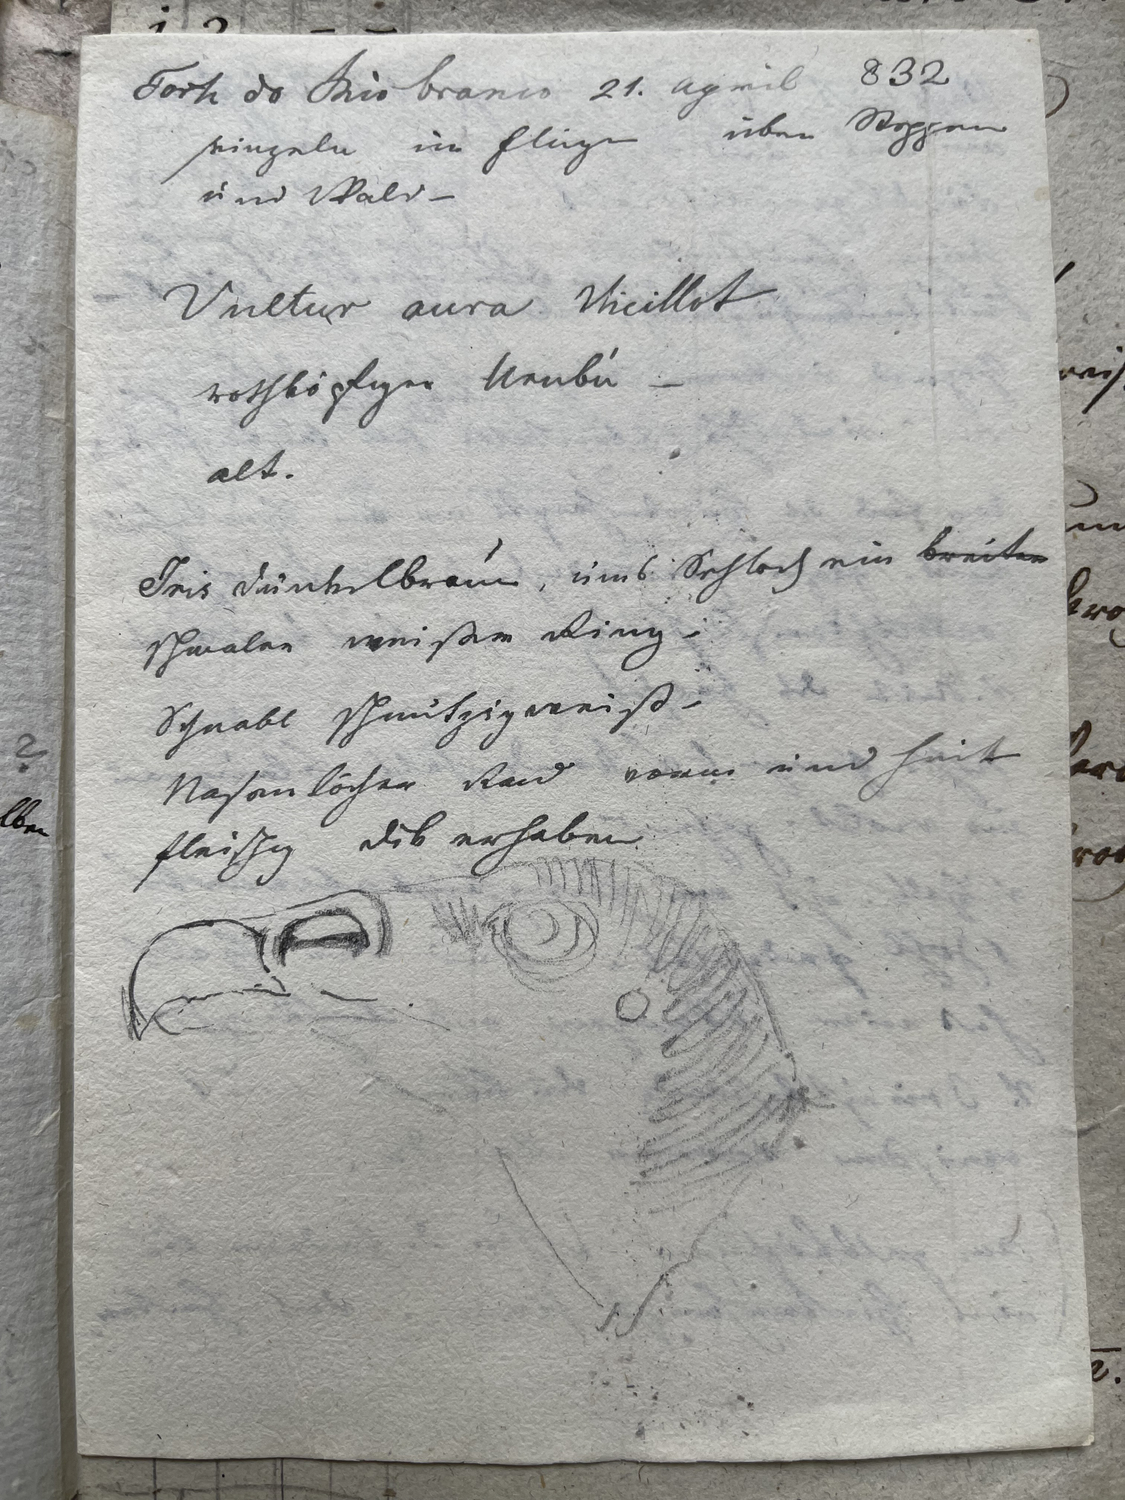 Forte do Rio branco 21. April 832
einzeln im Fluge über Steppen
und Wald –
Vultur aura Vieillot
rothköpfiger Urubú –
alt.
Iris dunkelbraun, ums Sehloch ein breiter
schmaler weißer Ring.
Schnabl schmutzigweiß.
Nasenlöcher Rand vorne und
fleischig dik erhaben